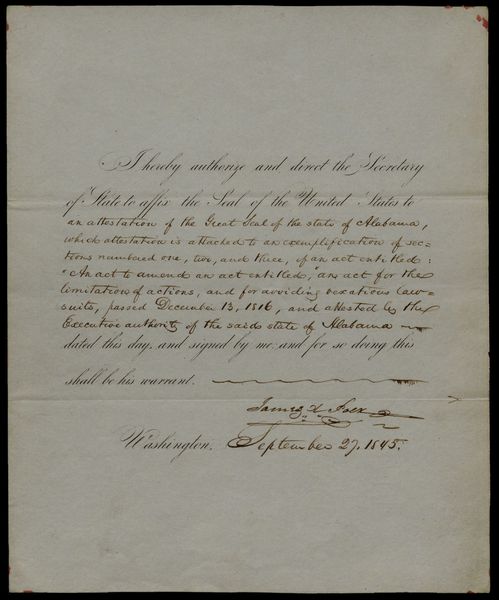 I hereby authorize and direct the Secretary
of State to affix the Seal of the United States to
an attestation of the Great Seal of the state of Alabama,
which attestation is attached to an exemplification of sec=
tions numbered one, two, and three, of an act entitled:
"An act to amend an act entitled, "an act for the
limitation of actions, and for avoiding vexatious law=
suits, passed December 13, 1816, and attested by the
Executive authority of the said state of Alabama
dated this day, and signed by me: and for so doing this
shall be his warrant.
James K Polk
Washington, September 27, 1845.